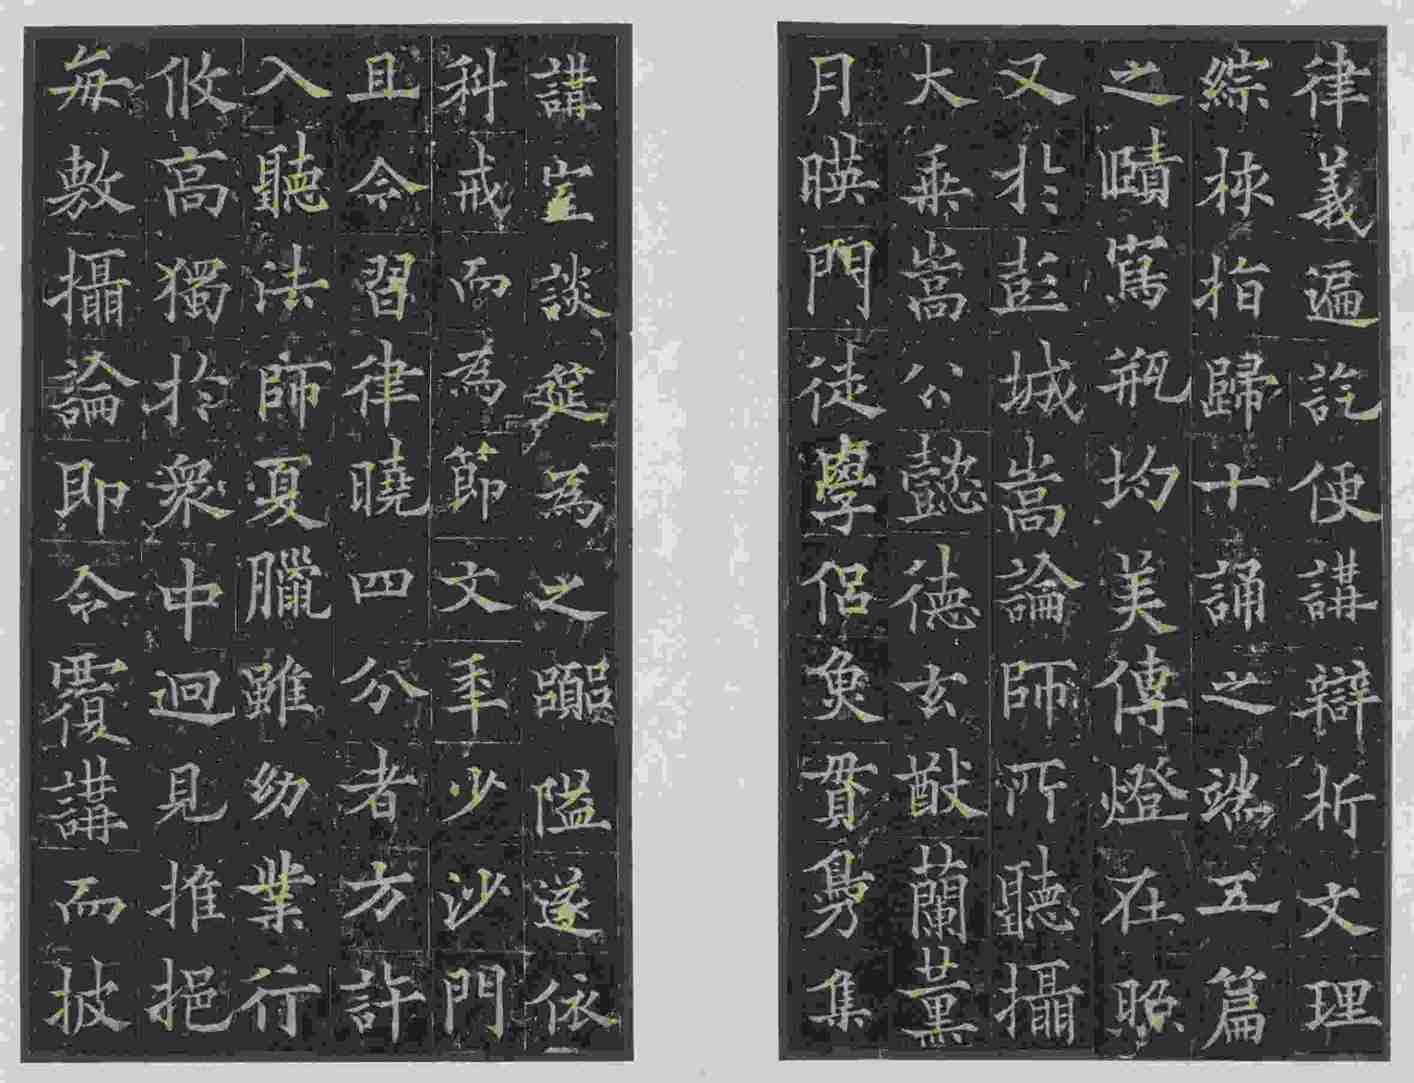 律義遍訖便講辯析文理
綜棶指歸十誦之端五篇
之賾篤瓶均美傳燈在照
又於彭城嵩論師所聽攝
大乗嵩公懿德玄猷蘭薫
月暎門徒學侶魚貫鳧集
講堂談筵為之嚻隘遂依
科戒而為節文年少沙門
且令習律曉四分者方許
入聽法師夏臘雖幼業行
攸高獨於衆中迥見推挹
每敷攝論即令覆講而披